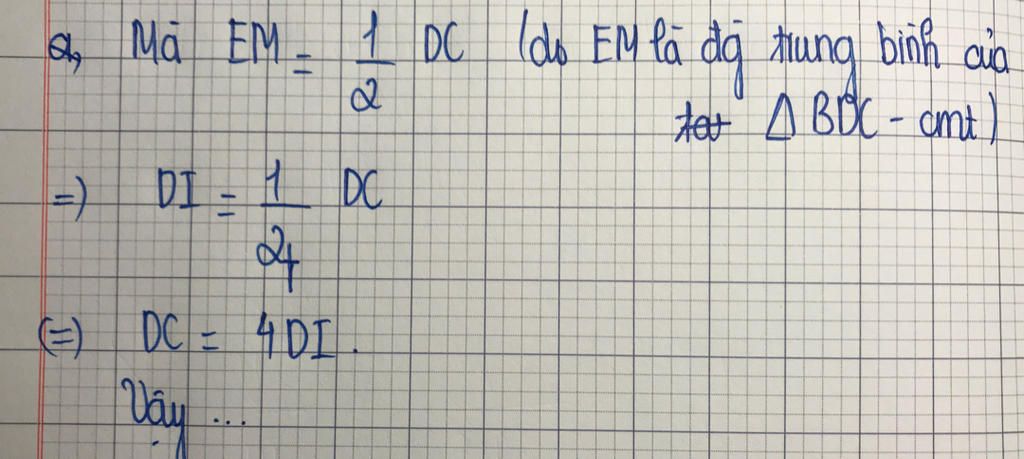 Mà EM = 1/2 DC (do EM là đg trung bình của
△ BDC - cmt)
=) DI = 1/4 DC
(=) DC = 4DI.
Vậy ...